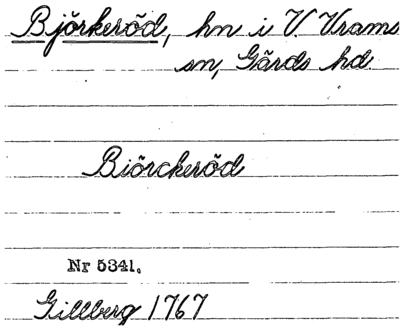 Björkeröd, hn i V. Vrams
sn, Gärds hd.
Biörckeröd
Nr 5341.
Gillberg 1767